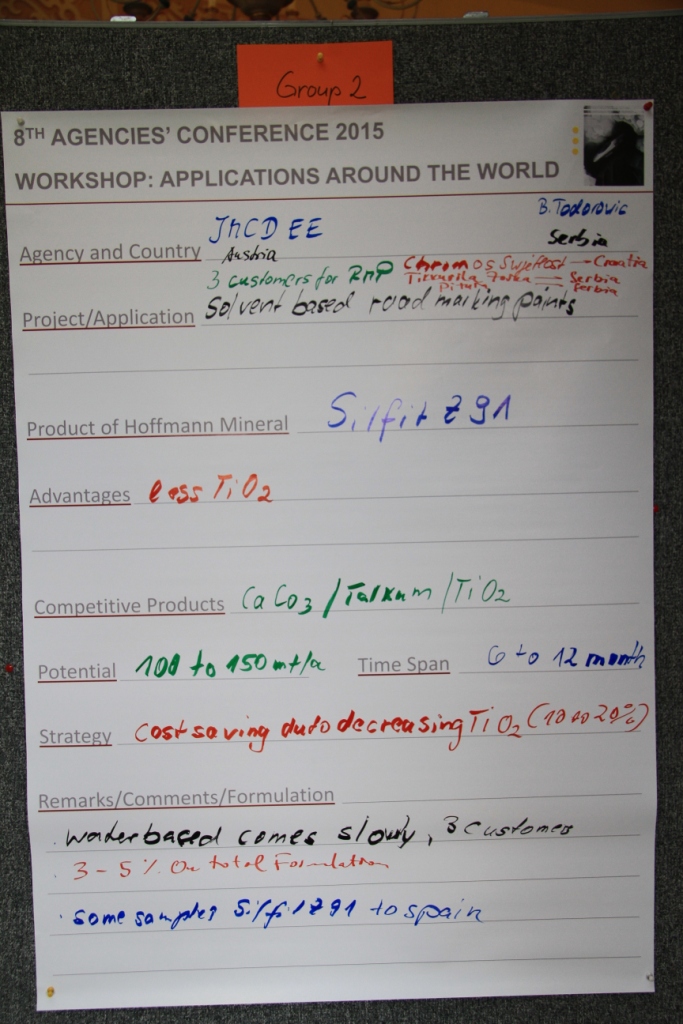 Group 2
8TH AGENCIES' CONFERENCE 2015
WORKSHOP: APPLICATIONS AROUND THE WORLD
B. Todorovic
JMCD EE
Serbia
Agency and Country
Austria
3 customers for RMP
Chromos Svjetlost → Croatia
Serbia
Pitura Serbia
Project/Application Solvent based road marking paints
Product of Hoffmann Mineral Silfit Z 91
Advantages less TiO2
Competitive Products CaCo3 / Talkum / TiO2
Potential 100 to 150 mt/a Time Span 6 to 12 month
Strategy cost saving duto decreasing TiO2 (10 to 20%)
Remarks/Comments/Formulation
. waterbased comes slowly, 3 customers
. 3 - 5 % On total Formulation
. some samples Silfit Z 91 to spain